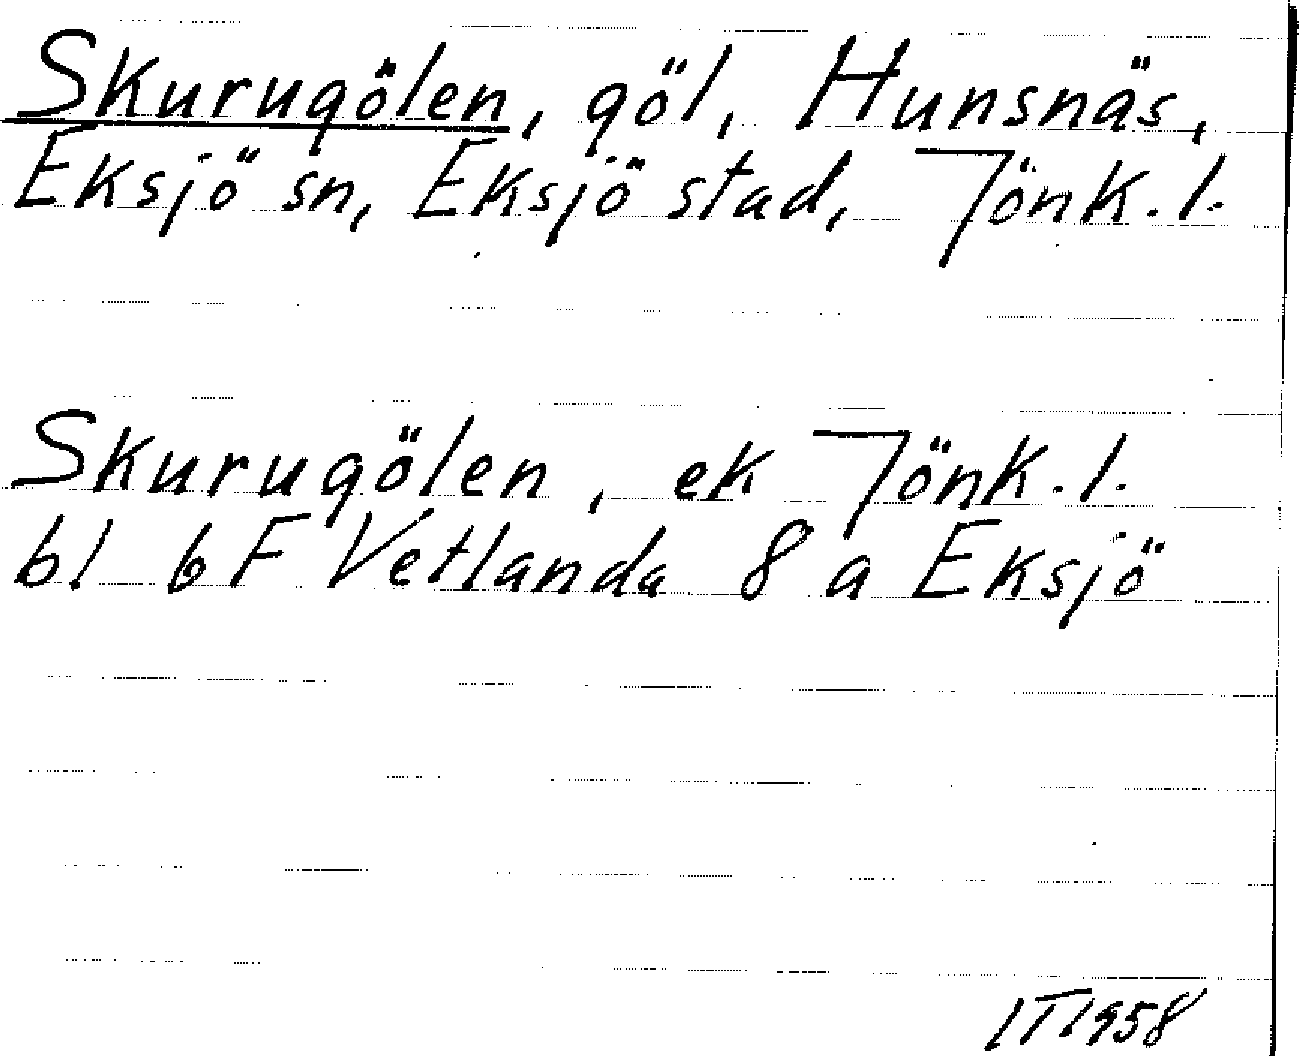 Skurugölen, göl, Hunsnäs,
Eksjö sn, Eksjö stad, Jönk. l.
Skurugölen, ek Jönk. l.
bl 6 F Vetlanda 8 a Eksjö
IT 1958